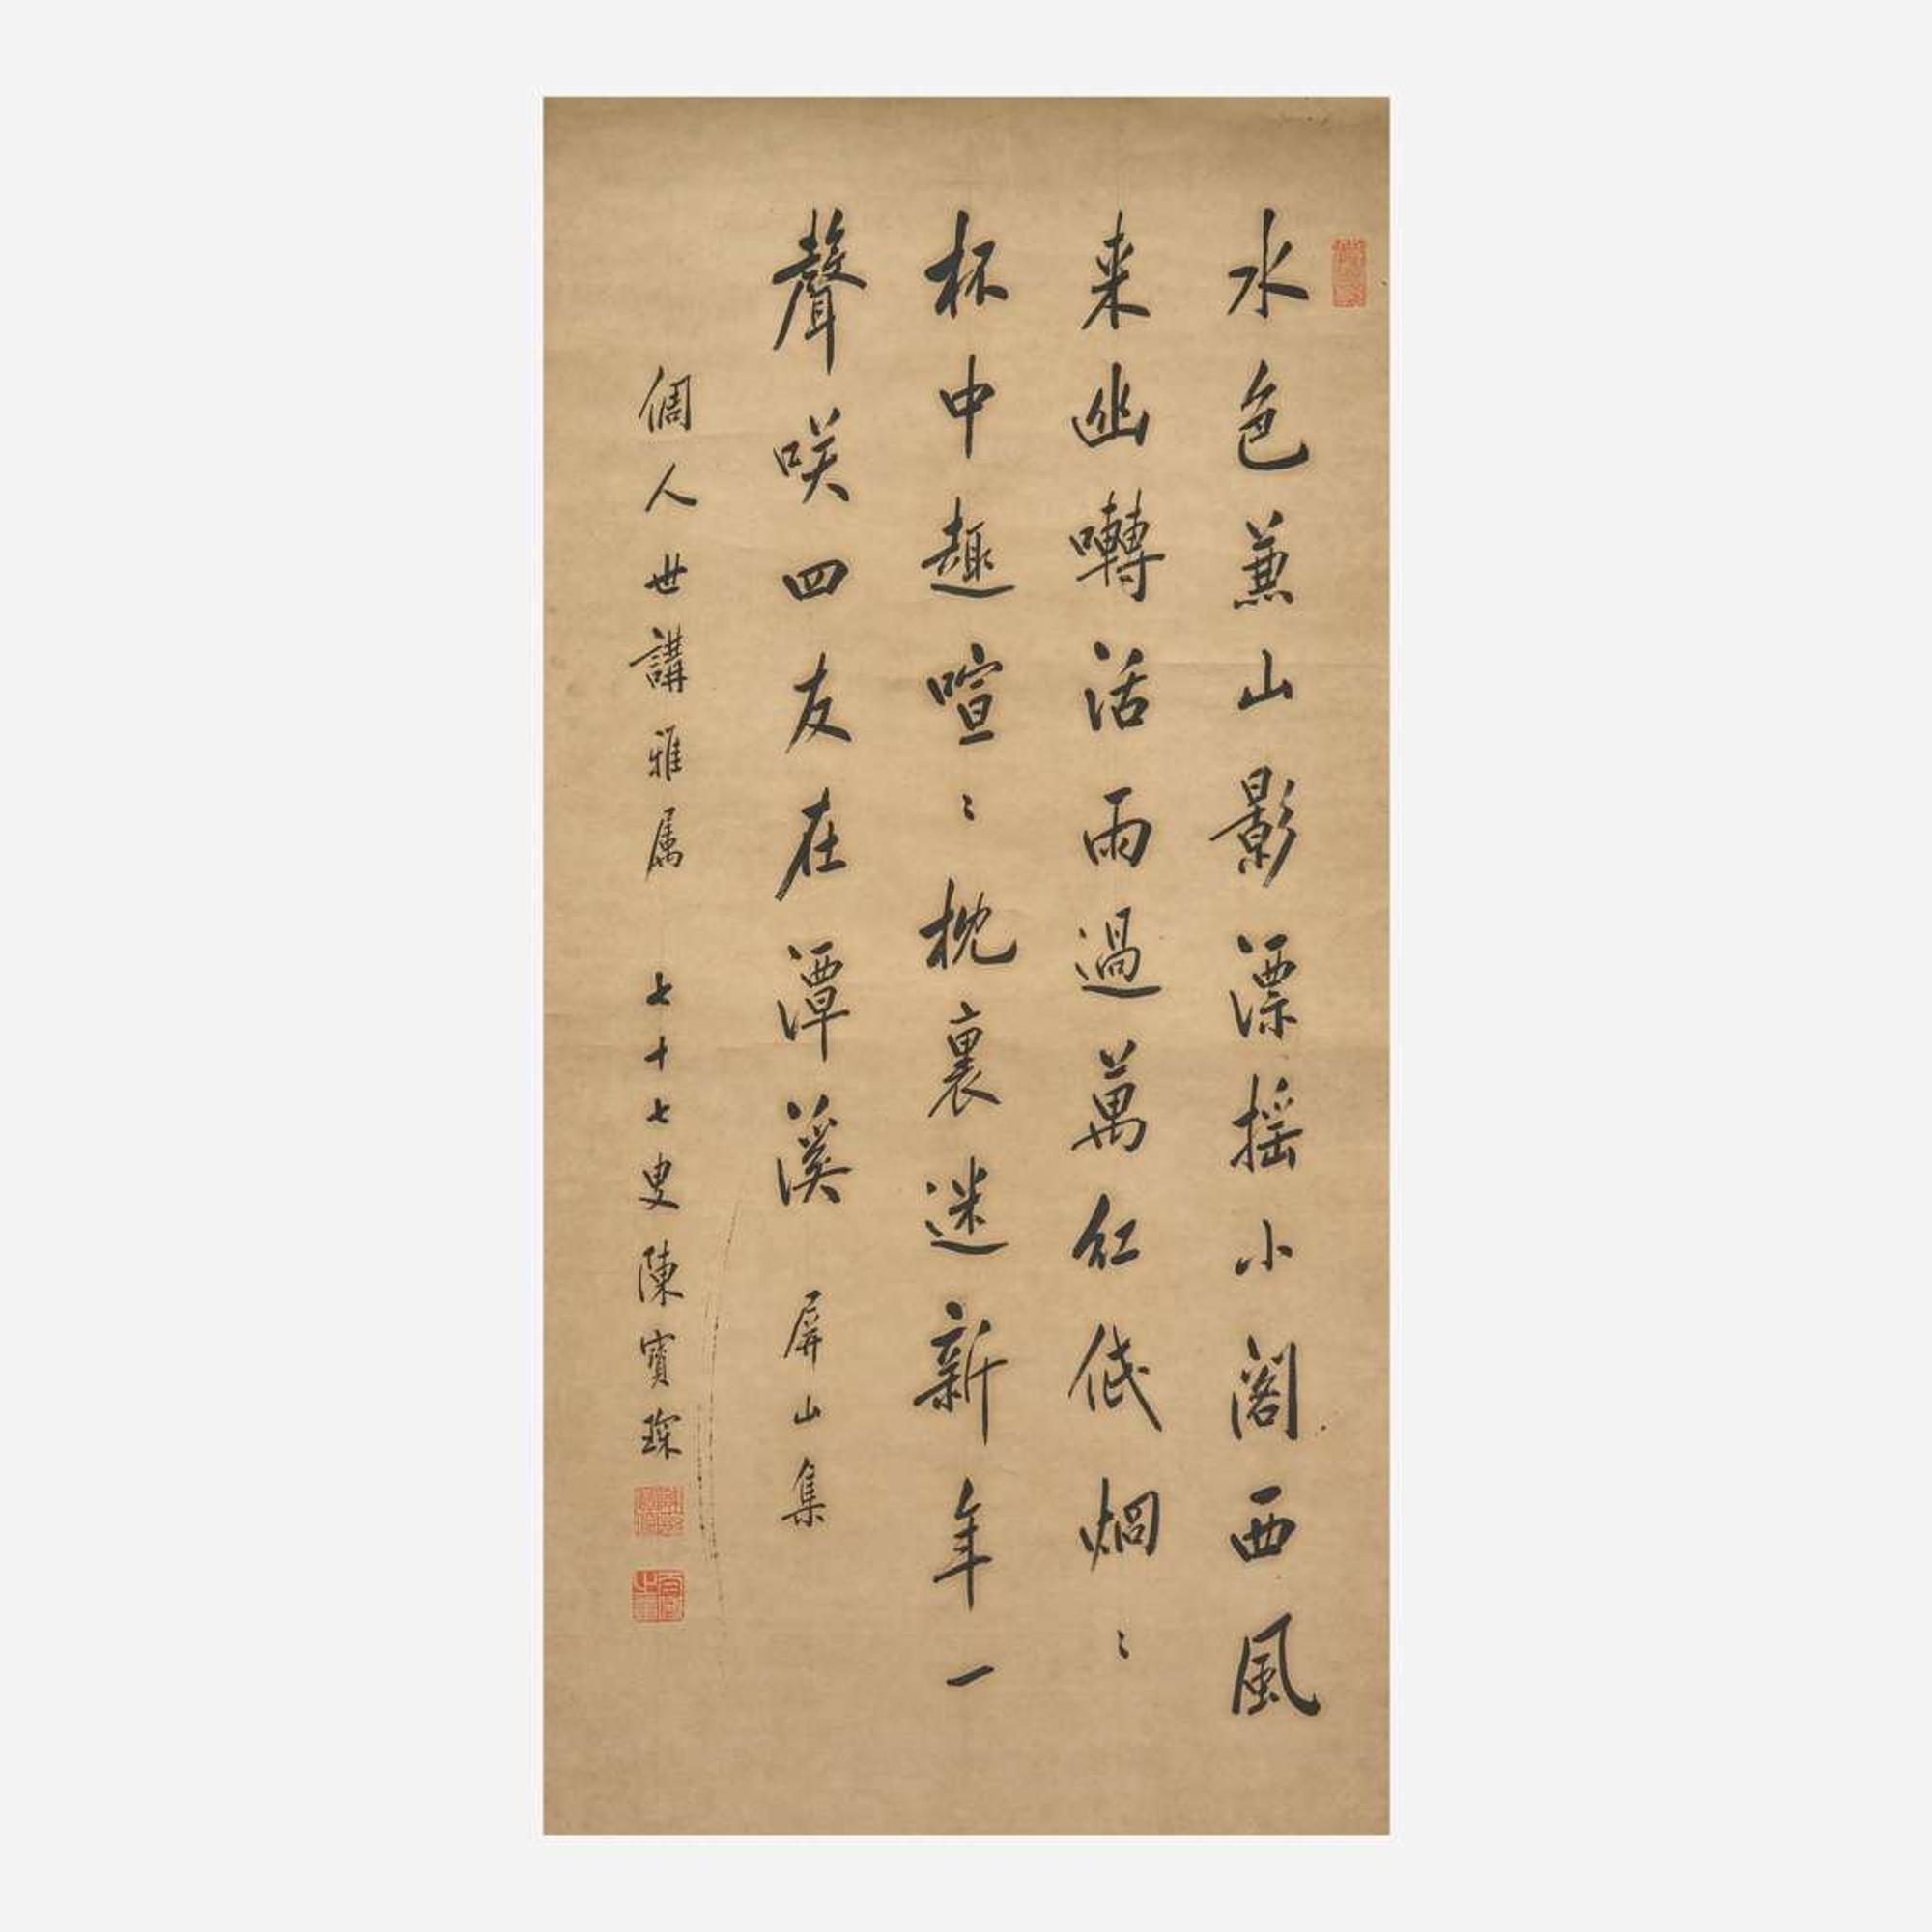 水色兼山影漂摇小阁西風
来幽囀活雨過萬紅低烟〻
杯中趣喧〻枕裏迷新年一
聲咲四友在潭溪 屏山集
倜人世講雅属 七十七叟陳寶琛